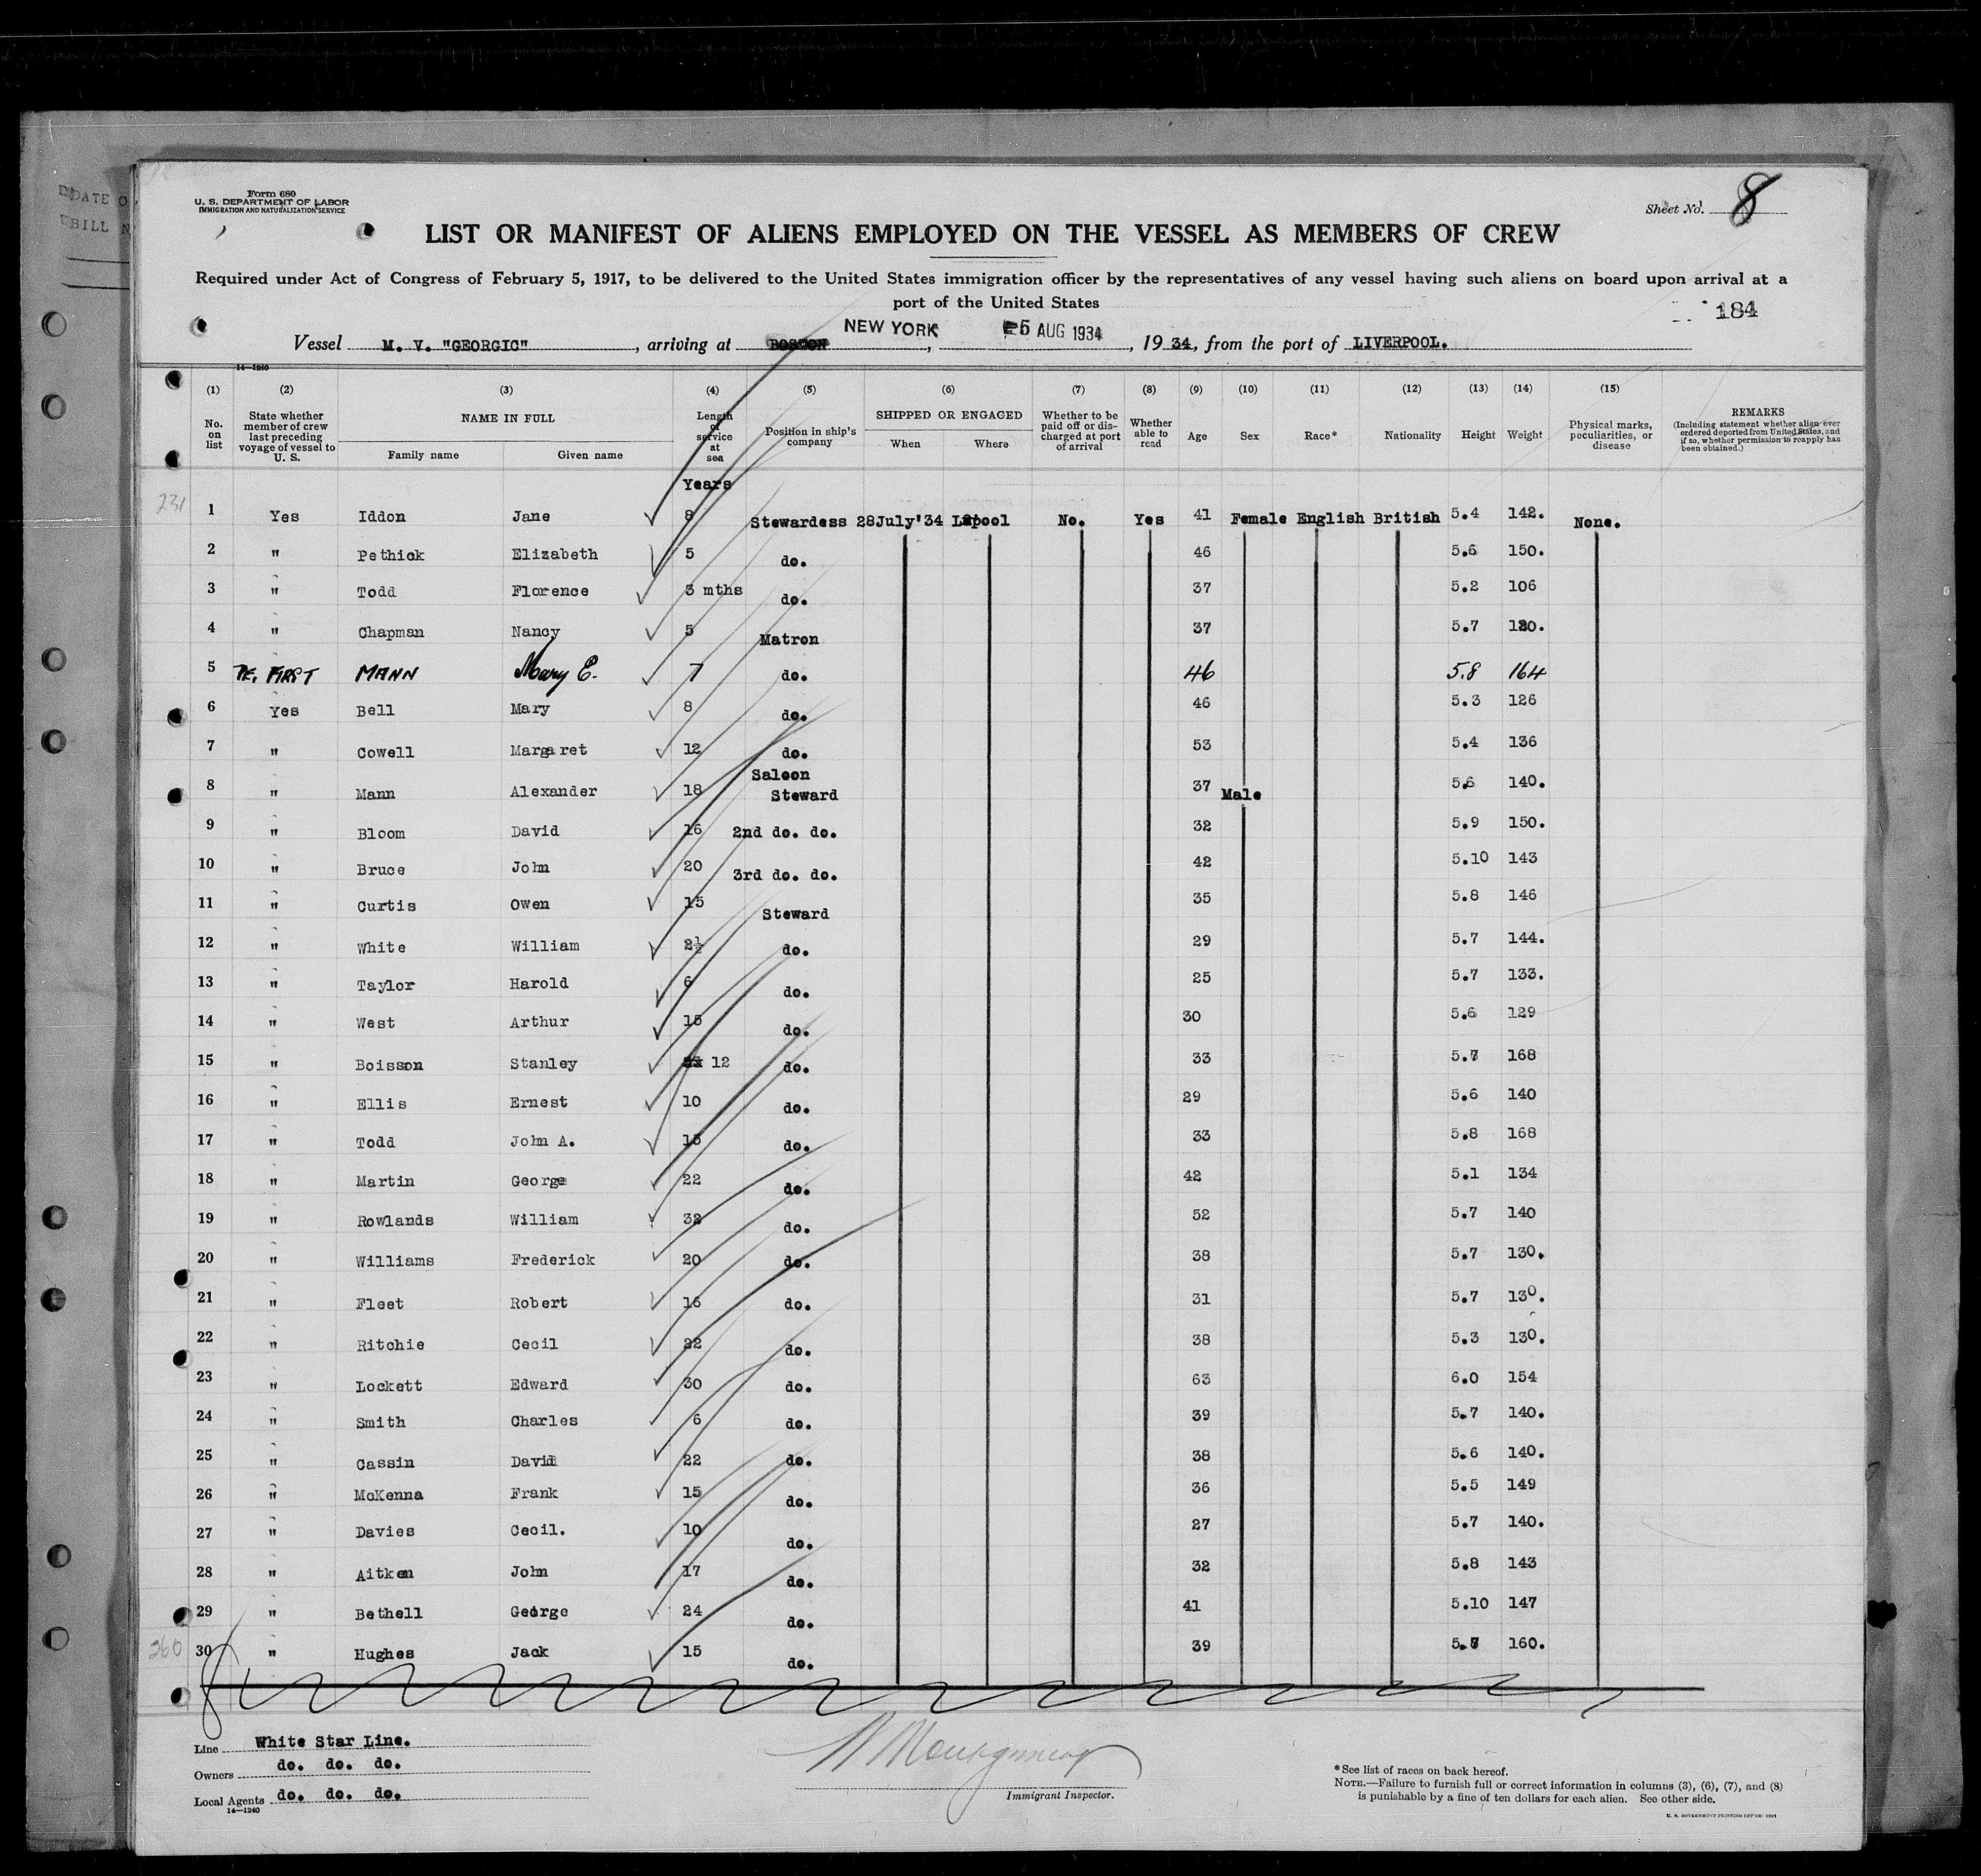 Form 680
U. S. DEPARTMENT OF LABOR
IMMIGRATION AND NATURALIZATION SERVICE
Sheet No. 8
LIST OR MANIFEST OF ALIENS EMPLOYED ON THE VESSEL AS MEMBERS OF CREW
Required under Act of Congress of February 5, 1917, to be delivered to the United States immigration officer by the representatives of any vessel having such aliens on board upon arrival at a
port of the United States
184
NEW YORK 5 AUG 1934
Vessel M. V. "GEORGIC", arriving at BOSTON, , 19 34, from the port of LIVERPOOL.
14—1240
(1) (2) (3) (4) (5) (6) (7) (8) (9) (10) (11) (12) (13) (14) (15)
No. on list State whether member of crew last preceding voyage of vessel to U. S. NAME IN FULL Family name Given name Length of service at sea Position in ship's company SHIPPED OR ENGAGED When Where Whether to be paid off or discharged at port of arrival Whether able to read Age Sex Race* Nationality Height Weight Physical marks, peculiarities, or disease REMARKS (Including statement whether alien ever ordered deported from United States, and if so, whether permission to reapply has been obtained.)
Years
231
1 Yes Iddon Jane 8 Stewardess 28July'34 Lpool No. Yes 41 Female English British 5.4 142. None.
2 " Pethick Elizabeth 5 do. 46 5.6 150.
3 " Todd Florence 3 mths do. 37 5.2 106
4 " Chapman Nancy 5 Matron 37 5.7 120.
5 FIRST MANN Mary E. 7 do. 46 5.8 164
6 Yes Bell Mary 8 do. 46 5.3 126
7 " Cowell Margaret 12 do. 53 5.4 136
8 " Mann Alexander 18 Saloon Steward 37 Male 5.6 140.
9 " Bloom David 16 2nd do. do. 32 5.9 150.
10 " Bruce John 20 3rd do. do. 42 5.10 143
11 " Curtis Owen 15 Steward 35 5.8 146
12 " White William 2½ do. 29 5.7 144.
13 " Taylor Harold 6 do. 25 5.7 133.
14 " West Arthur 15 do. 30 5.6 129
15 " Boisson Stanley 12 do. 33 5. 168
16 " Ellis Ernest 10 do. 29 5.6 140
17 " Todd John A. 15 do. 33 5.8 168
18 " Martin George 22 do. 42 5.1 134
19 " Rowlands William 38 do. 52 5.7 140
20 " Williams Frederick 20 do. 38 5.7 130.
21 " Fleet Robert 16 do. 31 5.7 130.
22 " Ritchie Cecil 22 do. 38 5.3 130.
23 " Lockett Edward 30 do. 63 6.0 154
24 " Smith Charles 6 do. 39 5.7 140.
25 " Cassin David 22 do. 38 5.6 140.
26 " McKenna Frank 15 do. 36 5.5 149
27 " Davies Cecil. 10 do. 27 5.7 140.
28 " Aitken John 17 do. 32 5.8 143
29 " Bethell George 24 do. 41 5.10 147
260
30 " Hughes Jack 15 do. 39 5. 160.
Line White Star Line.
Owners do. do. do.
Local Agents do. do. do.
14—1240
Montgomery
Immigrant Inspector.
*See list of races on back hereof.
NOTE.—Failure to furnish full or correct information in columns (3), (6), (7), and (8)
is punishable by a fine of ten dollars for each alien. See other side.
U. S. GOVERNMENT PRINTING OFFICE